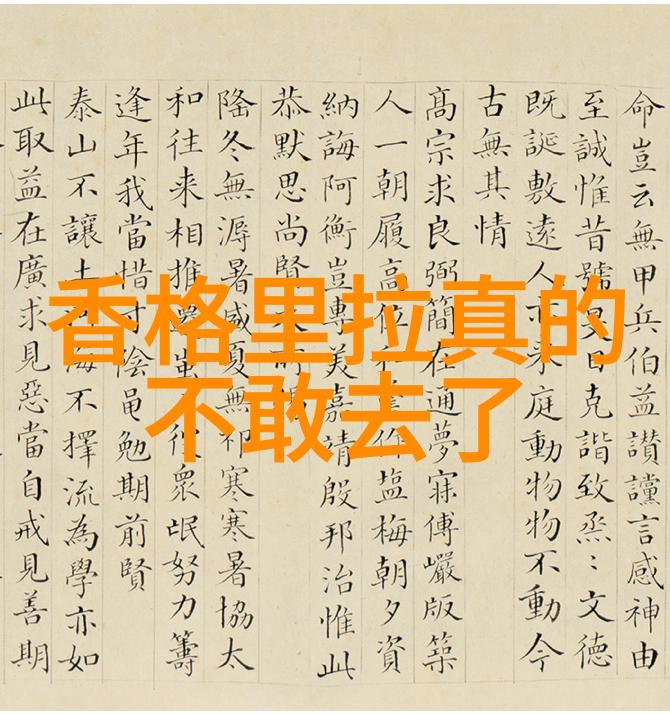 命豈云無甲兵伯益讃讜言感神由
至誠惟昔號旻日克諧致烝〻文德
既誕敷遠人亦来庭動物物不動今
古無其情
高宗求良弼簡在通夢寐傅嚴版築
人一朝履高位和羹作塩梅朝夕資
納誨阿衡豈專美嘉靖殷邦治惟此
恭默思尚賢
隆冬無溽暑盛夏無祁寒寒暑協太
和往来相推遷蚩彼衆氓努力籌
逢年我當惜寸陰黽勉期前賢
泰山不讓土河海不擇流為學亦如
此取益在廣求見惡當自戒見善期
香格里拉真的
不敢去了